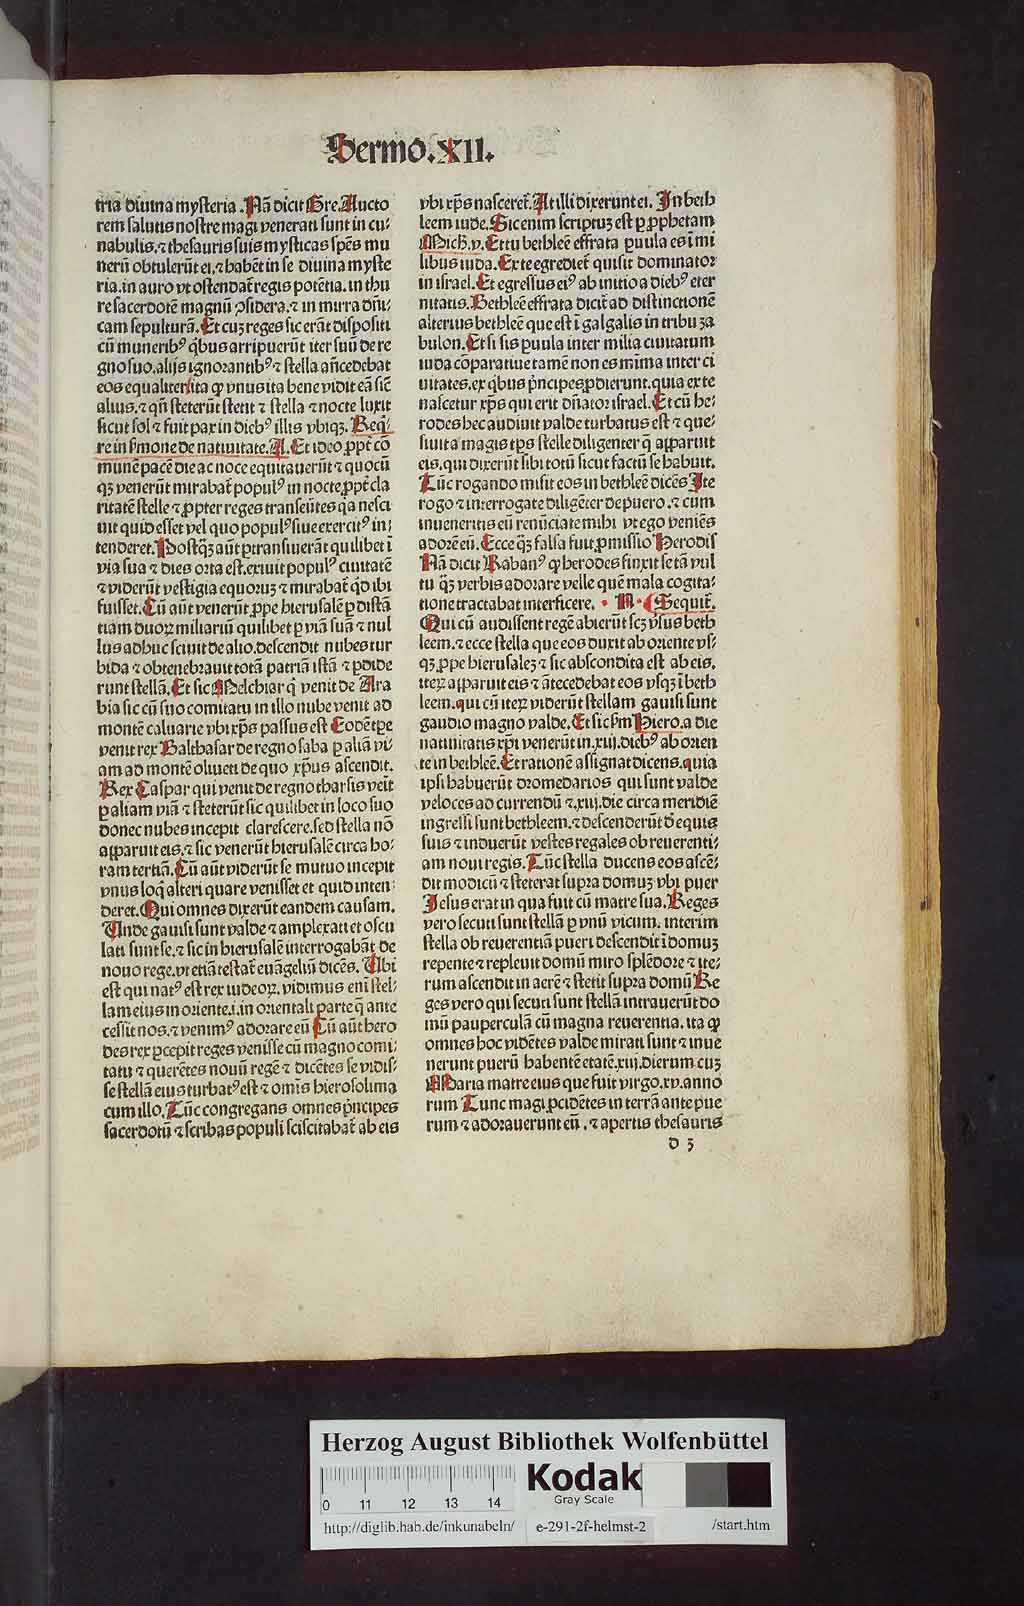 Sermo.XII.
tria diuina mysteria. Nā dicit Gre. Aucto
rem salutis nostre magi venerati sunt in cu⸗
nabulis.⁊ thesauris suis mysticas spēs mu
nerū obtulerūt ei.⁊ habēt in se diuina myste
ria.in auro vt ostendat̄ regis potētia. in thu
re sacerdotē magnū ꝯsidera.⁊ in mirra dn̄i⸗
cam sepulturā. Et cuꝫ reges sic erāt dispositi
cū munerib⁹ q̇bus arripuerūt iter suū de re
gno suo.alijs ignorantib⁹ ⁊ stella an̄cedebat
eos equaliter ita ꝙ vnus ita bene vidit eā sic̄
alius.⁊ qn̄ steterūt stetit ⁊ stella ⁊ nocte luxit
sicut sol ⁊ fuit pax in dieb⁹ illis vbiqꝫ. Req̄⸗
re in ẜmone de natiuitate. A. Et ideo ꝓpt̄ cō
munē pacē die ac nocte equitauerūt ⁊ quocū
qꝫ venerūt mirabat̄ popul⁹ in nocte ꝓpt̄ cla
ritatē stelle ⁊ ꝓpter reges transeūtes q̇a nesci
uit quid esset vel quo popul⁹ siue exercit⁹ in⸗
tenderet. Postq̄ꝫ aūt ꝑtransiuerāt quilibet ī
via sua ⁊ dies orta est.exiuit popul⁹ ciuitatē
⁊ viderūt vestigia equoruꝫ ⁊ mirabat̄ qd̓ ibi
fuisset. Cū aūt venerūt ꝓpe hierusalē ꝑ distā
tiam duoꝝ miliariū quilibet ꝑ viā suā ⁊ nul
lus adhuc sciuit de alio.descendit nubes tur
bida ⁊ obtenebrauit totā patriā istā ⁊ ꝑdide
runt stellā. Et sic Melchiar q̇ venit de Ara
bia sic cū suo comitatu in illo nube venit ad
montē caluarie vbi xp̄s passus est Eodē tꝑe
venit rex Balthasar de regno saba ꝑ aliā vi⸗
am ad montē oliueti de quo xp̄us ascendit.
Rex Caspar qui venit de regno tharsis veīt
ꝑ aliam viā ⁊ steterūt sic quilibet in loco suo
donec nubes incepit clarescere.sed stella nō
apparuit eis.⁊ sic venerūt hierusalē circa ho⸗
ram tertiā. Cū aūt viderūt se mutuo incepit
vnus loq̇ alteri quare venisset et quid inten⸗
deret. Qui omnes dixerūt eandem causam.
Unde gauisi sunt valde ⁊ amplexati et oscu
lati sunt se.⁊ sic in hierusalē interrogabāt de
nouo rege.vt etiā testat̄ euāgeliū dicēs. Ubi
est qui nat⁹ est rex iudeoꝝ. vidimus eni᷑ stel⸗
lam eius in oriente.i.in orientali parte q̄ ante
cessit nos.⁊ venim⁹ adorare eū Cū aūt hero
des rex ꝑcepit reges venisse cū magno comi⸗
tatu ⁊ querētes nouū regē ⁊ dicētes se vidis⸗
se stellā eius turbat⁹ est ⁊ omīs hierosolima
cum illo. Tūc congregans omnes pͥncipes
sacerdotū ⁊ scribas populi sciscitabat̄ ab eis
vbi xp̄s nasceret̄. At illi dixerunt ei. In beth
leem iude. Sic enim scriptuꝫ est ꝑ ꝓphetam
Mich. v. Et tu bethleē effrata puula es ī mi
libus iuda. Ex te egrediet̄ qui sit dominator
in israel. Et egressus ei⁹ ab initio a dieb⁹ eter
nitatis. Bethleē effrata dicit̄ ad distinctionē
alterius bethleē que est ī galgalis in tribu za
bulon. Et si sis puula inter milia ciuitatum
iuda cōparatiue tamē non es mīma inter ci
uitates.ex q̇bus pͥncipes ꝓdierunt.quia ex te
nascetur xp̄s qui erit dn̄ator israel. Et cū he⸗
rodes hec audiuit valde turbatus est ⁊ que⸗
siuit a magis tp̄s stelle diligenter q̄ apparuit
eis.qui dixerūt sibi totū sicut factū se habuit.
Tūc rogando misit eos in bethleē dicēs Ite
rogo ⁊ interrogate diligēter de puero.⁊ cum
inueneritis eū renūciate mihi vt ego veniēs
adorē eū. Ecce q̄ꝫ falsa fuit ꝓmissio Herodis
Nā dicit Raban⁹ ꝙ herodes finxit se tā vul
tu q̄ꝫ verbis adorare velle quē mala cogita⸗
tione tractabat interficere. • N • Sequit̄.
Qui cū audissent regē abierūt scꝫ ꝟsus beth
leem.⁊ ecce stella que eos duxit ab oriente vs⸗
qꝫ ꝓpe hierusaleꝫ ⁊ sic abscondita est ab eis.
iteꝝ apparuit eis ⁊ ātecedebat eos vsqꝫ ī beth
leem.qui cū iteꝝ viderūt stellam gauisi sunt
gaudio magno valde. Et sic ẜm Hiero.a die
natiuitatis xp̄i venerūt in.xiij.dieb⁹ ab orien
te in bethleē. Et rationē assignat dicens.quia
ipsi habuerūt dromedarios qui sunt valde
veloces ad currendū ⁊.xiij.die circa meridiē
ingressi sunt bethleem.⁊ descenderūt d̓ equis
suis ⁊ induerūt vestes regales ob reuerenti⸗
am noui regis. Tūc stella ducens eos ascē⸗
dit modicū ⁊ steterat supra domuꝫ vbi puer
Jesus erat in qua fuit cū matre sua. Reges
vero secuti sunt stellā ꝑ vnū vicum. interim
stella ob reuerentiā pueri descendit ī domuꝫ
repente ⁊ repleuit domū miro splēdore ⁊ ite⸗
rum ascendit in aerē ⁊ stetit supra domū Re
ges vero qui secuti sunt stellā intrauerūt do
mū pauperculā cū magna reuerentia. ita ꝙ
omnes hoc vidētes valde mirati sunt ⁊ inue
nerunt puerū habentē etatē.xiij.dierum cuꝫ
Maria matre eius que fuit virgo.xv.anno
rum Tunc magi ꝓcidētes in terrā ante pue
rum ⁊ adorauerunt eū.⁊ apertis thesauris
d 3
Herzog August Bibliothek Wolfenbüttel
Kodak
Gray Scale
0 11 12 13 14
http://diglib.hab.de/inkunabeln/ e-291-2f-helmst-2 /start.htm